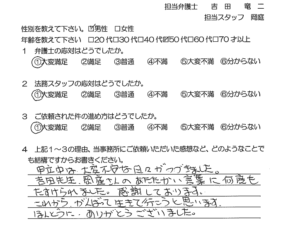 担当弁護士　吉田　竜二
担当スタッフ　岡庭
性別を教えて下さい。☑男性　□女性
年齢を教えて下さい　□20代□30代□40代☑50代□60代□70才以上
1　弁護士の応対はどうでしたか。
①大変満足　②満足　③普通　④不満　⑤大変不満　⑥分からない
2　法務スタッフの応対はどうでしたか。
①大変満足　②満足　③普通　④不満　⑤大変不満　⑥分からない
3　ご依頼された件の進め方はどうでしたか。
①大変満足　②満足　③普通　④不満　⑤大変不満　⑥分からない
4　上記1～3の理由、当事務所にご依頼いただいた感想など、どのようなことでも結構ですからお書きください。
申立中は、大変不安な日々がつづきました。
吉田先生、岡庭さんのあたたかい言葉に何度も
たすけられました。感謝しております。
これから、がんばって生きて行こうと思います。
ほんとうに、ありがとうございました。